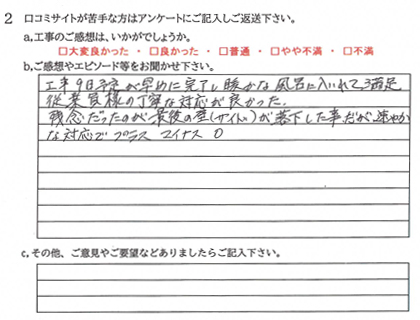 2 口コミサイトが苦手な方はアンケートにご記入しご返送下さい。
a.工事のご感想は、いかがでしょうか。
□大変良かった ・□良かった ・□普通 ・□やや不満 ・□不満
b.ご感想やエピソード等をお聞かせ下さい。
工事9日予定が早めに完了し暖かな風呂に入いれて、満足
従業員様の丁寧な対応が良かった。
残念だったのが最後の壁(サイド)が落下した事だが、速やか
な対応でプラス マイナス 0
c.その他、ご意見やご要望などありましたらご記入下さい。